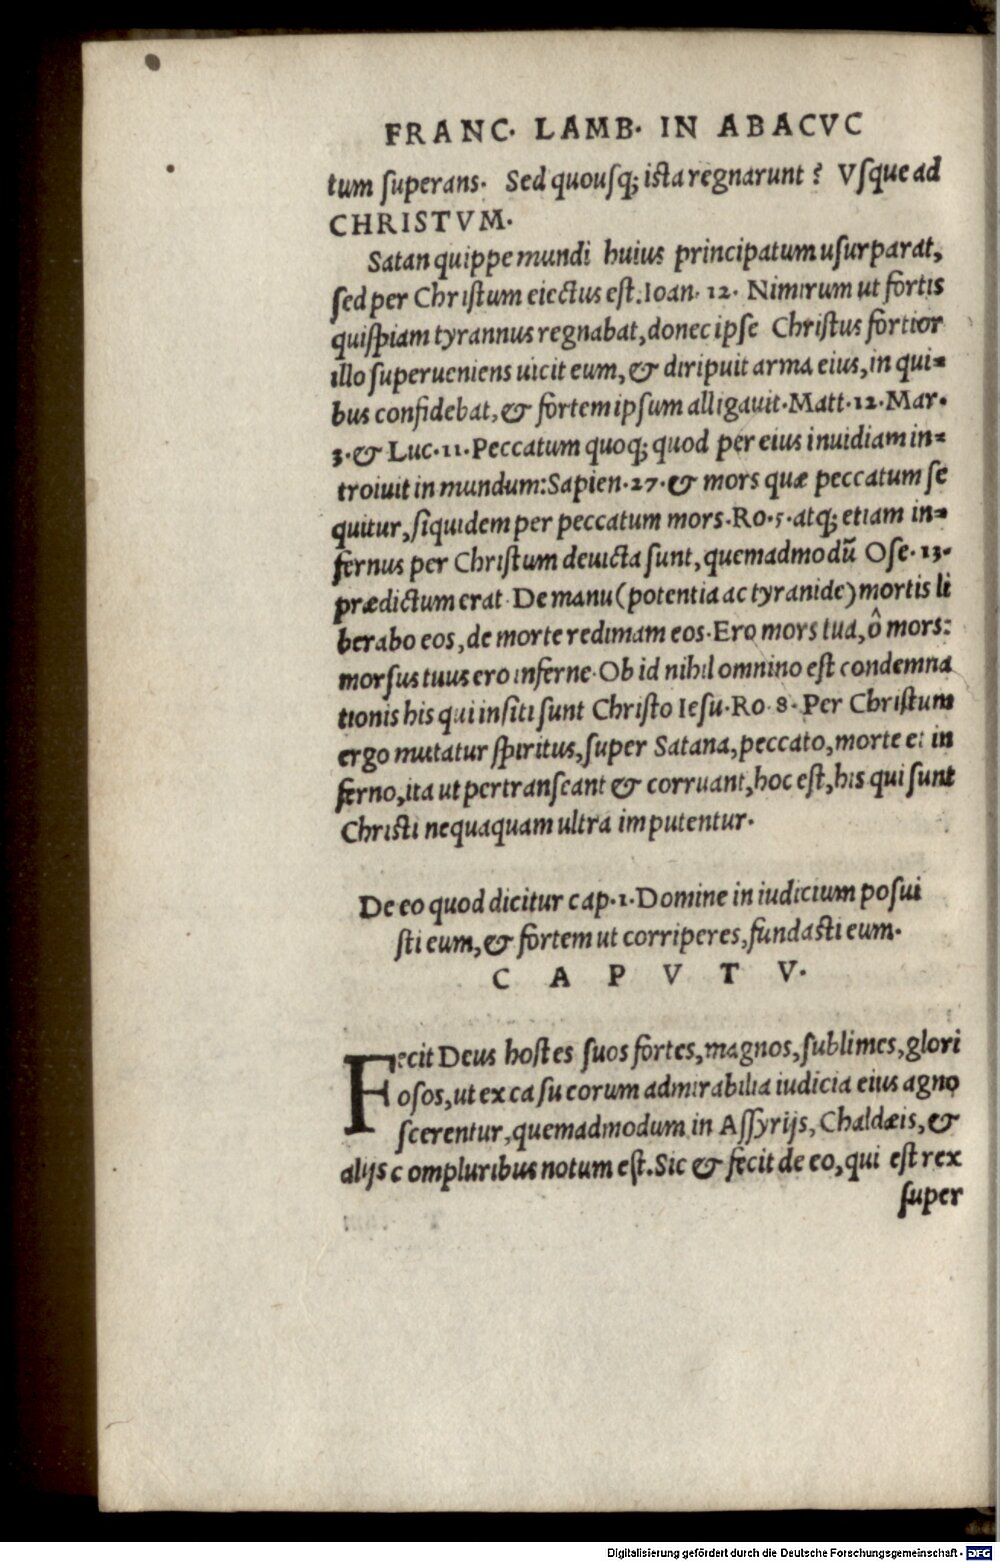 FRANC. LAMB. IN ABACVC
tum ſuperans. Sed quouſq; iſta regnarunt? Vſque ad
CHRISTVM.
Satan quippe mundi huius principatum uſurparat,
ſed per Chriſtum eiectus eſt. Ioan. 12. Nimirum ut fortis
quiſpiam tyrannus regnabat, donec ipſe Chriſtus fortior
illo ſuperueniens uicit eum, & diripuit arma eius, in qui=
bus confidebat, & fortem ipſum alligauit. Matt. 12. Mar.
3. & Luc. 11. Peccatum quoq; quod per eius inuidiam in=
troiuit in mundum: Sapien. 27. & mors quæ peccatum ſe
quitur, ſiquidem per peccatum mors. Ro. 5. atq; etiam in=
fernus per Chriſtum deuicta ſunt, quemadmodū Oſe. 13.
prædictum erat. De manu (potentia ac tyranide) mortis li
berabo eos, de morte redimam eos. Ero mors tua, ô mors:
morſus tuus ero inferne. Ob id nihil omnino eſt condemna
tionis his qui inſiti ſunt Chriſto Ieſu. Ro. 8. Per Chriſtum
ergo mutatur ſpiritus, ſuper Satana, peccato, morte et in
ferno, ita ut pertranſeant & corruant, hoc eſt, his qui ſunt
Chriſti nequaquam ultra imputentur.
De eo quod dicitur cap. 1. Domine in iudicium poſui
ſti eum, & fortem ut corriperes, fundaſti eum.
CAPVT V.
Fecit Deus hoſtes ſuos fortes, magnos, ſublimes, glori
oſos, ut ex caſu eorum admirabilia iudicia eius agno
ſcerentur, quemadmodum in Aſſyrijs, Chaldæis, &
alijs compluribus notum eſt. Sic & fecit de eo, qui eſt rex
ſuper
Digitalisierung gefördert durch die Deutsche Forschungsgemeinschaft - DFG